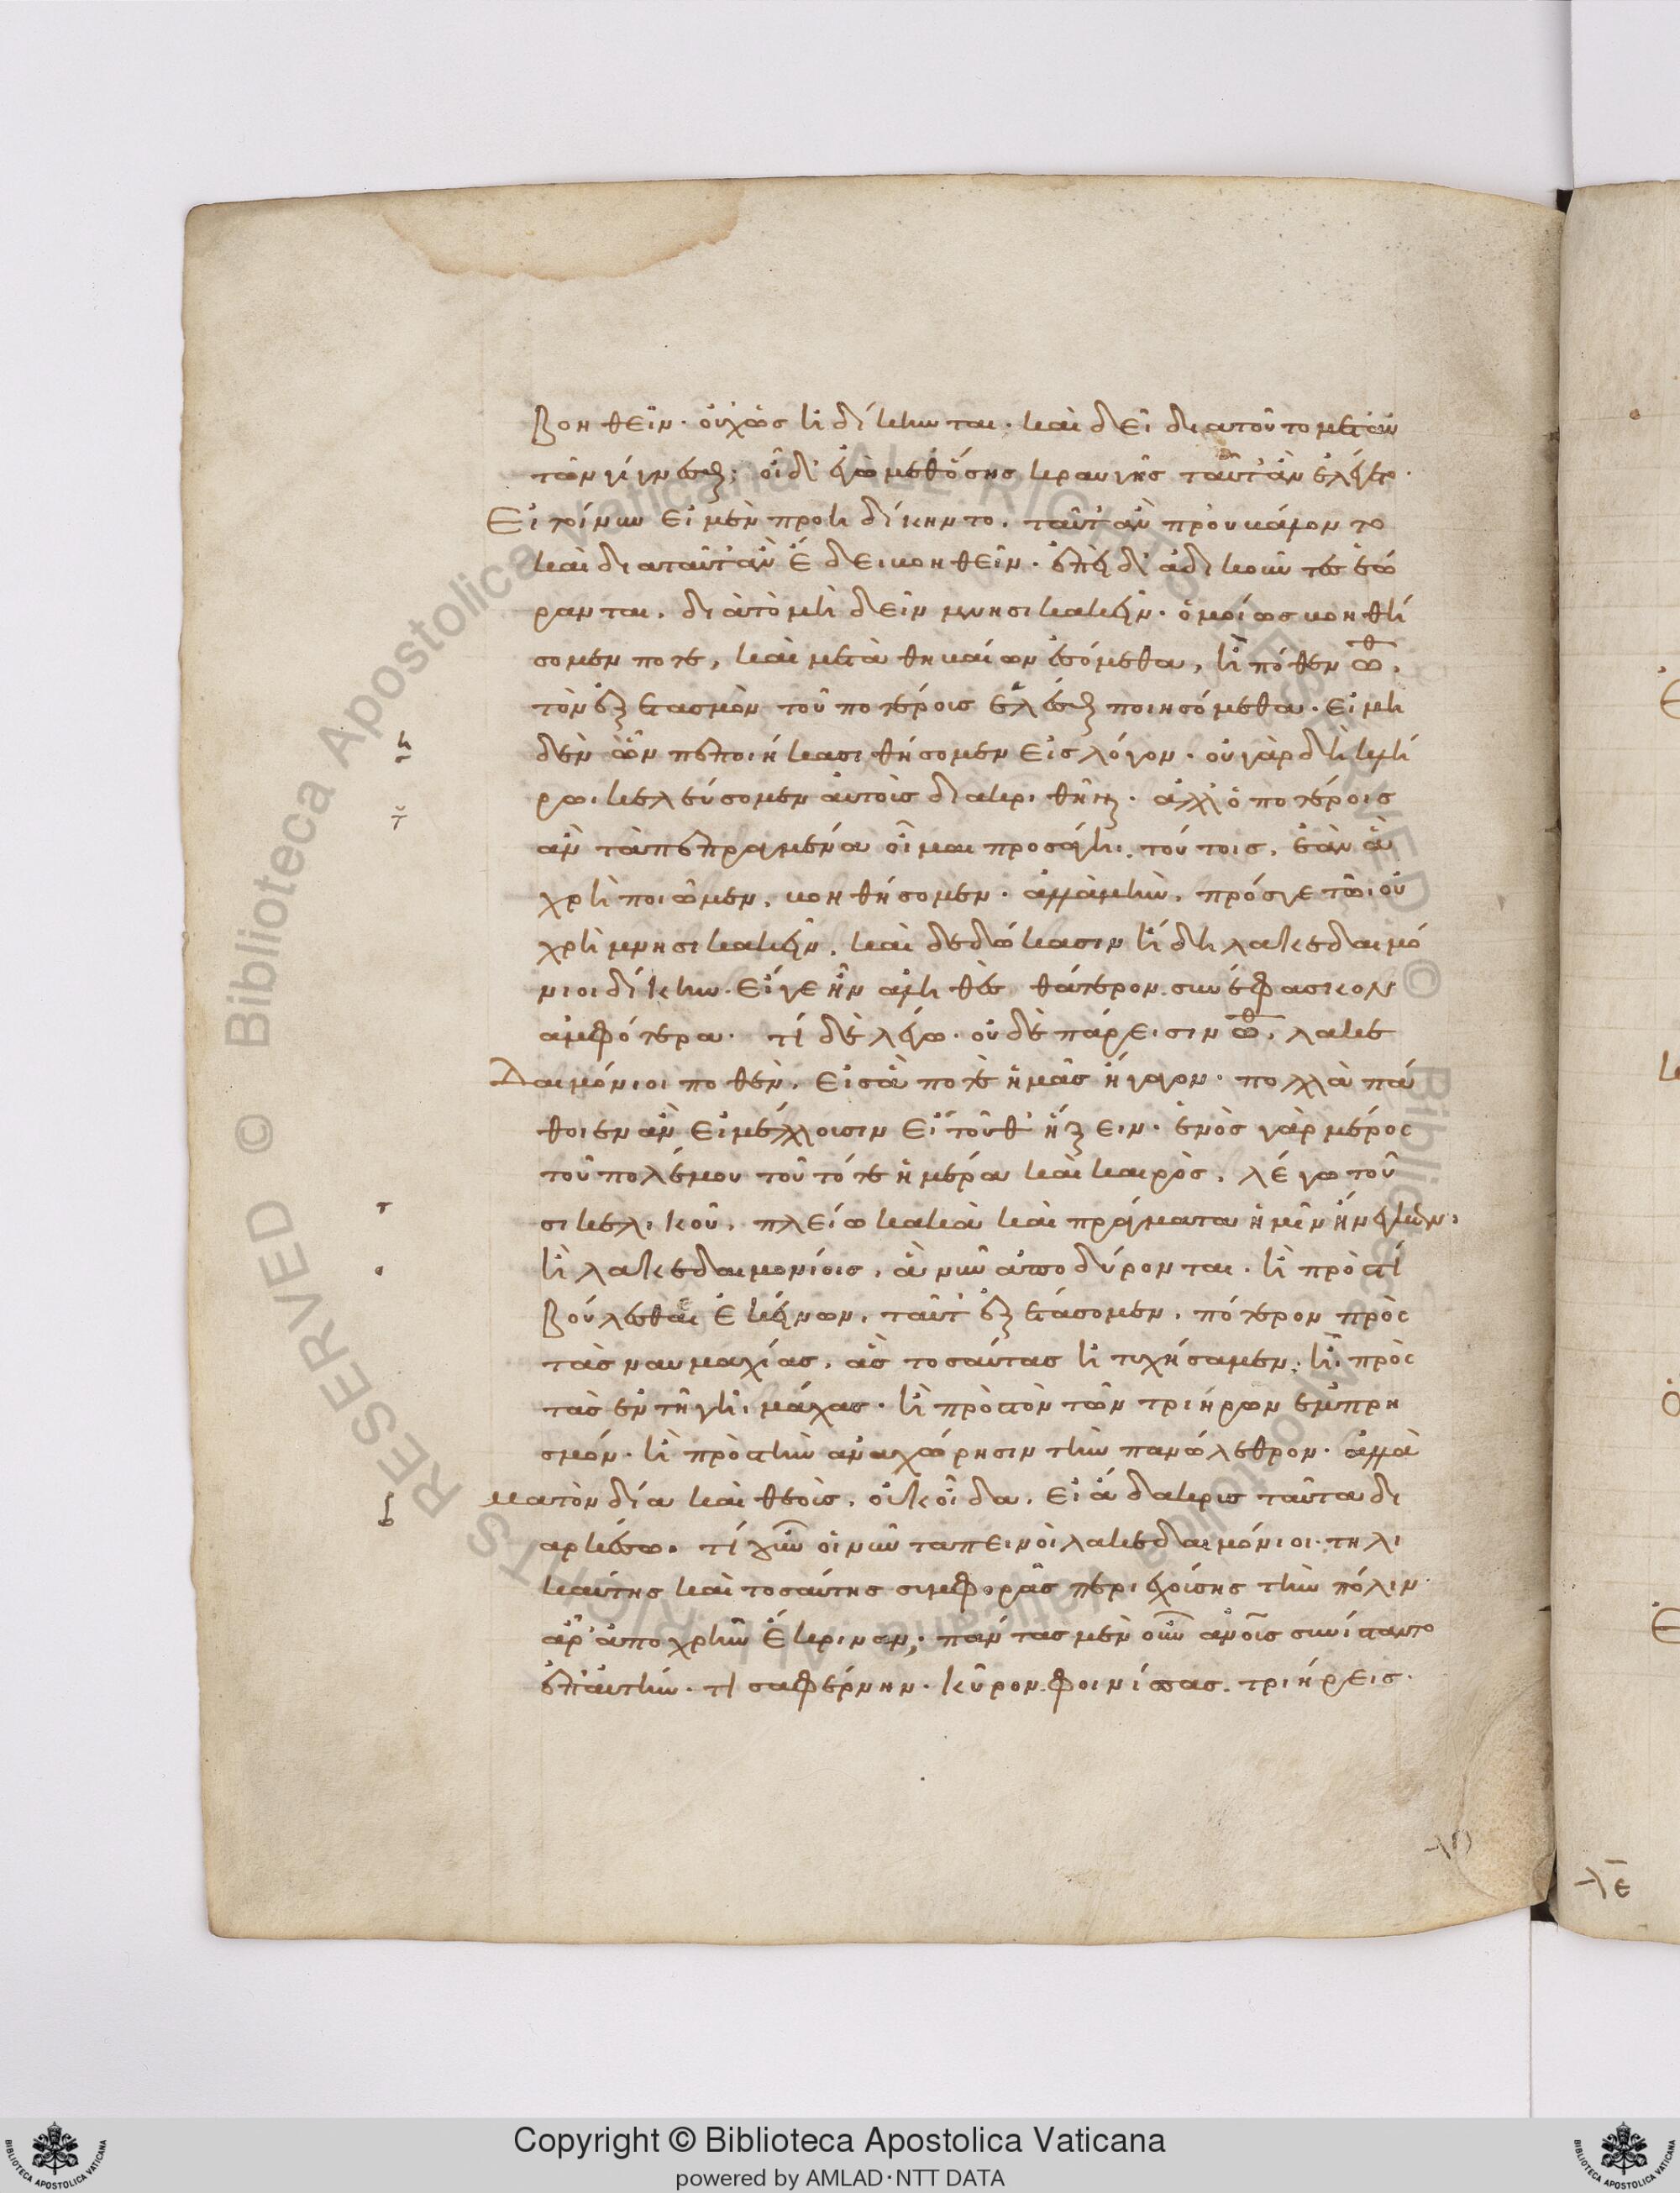 βοηθεῖν· οὐχ ὡς ἠδίκηνται· καὶ δεῖ διὰ τοῦτο μετ' αὐ
τῶν γίγνεσθαι; οἶδ' ἐγὼ μεθ' ὅσης κραυγῆς ταῦτ' ἂν ἔλεγεν·
Εἰ τοίνυν εἰ μὲν προηδίκηντο, ταῦτ' ἂν προὐβάλοντο
καὶ διὰ ταῦτ' ἂν ἔδει βοηθεῖν· ἐπεὶ δ' ἀδικοῦντες ἑώ
ρανται, διὰ τὸ μὴ δεῖν μνησικακεῖν· ὁμοίως βοηθή
σομέν ποτε, καὶ μετὰ θηβαίων ἐσόμεθα, ἢ πόθεν ὦ Ἀθ,
τὸν ἐξετασμὸν τοῦ ποτέροις ἑλέσθαι ποιησόμεθα· εἰ μη
δὲν ὧν πεποιήκασι θήσομεν εἰς λόγον· οὐ γὰρ δὴ κλή
ρῳ κελεύσομεν αὐτοῖς διακριθῆναι· ἀλλ' ὁποτέροις
ἂν τὰ πεπραγμένα οἶμαι προσάγῃ, τούτοις, ἐὰν ἃ
χρὴ ποιῶμεν, βοηθήσομεν· ἀλλὰ μὴν, πρός γε τῷ οὐ
χρὴ μνησικακεῖν, καὶ δεδώκασιν ἤδη λακεδαιμό
νιοι δίκην· εἴ γε ἦν ἀληθὲς θάτερον συνέφασκον
ἀμφότερα· τί δὲ λέγω· οὐδὲ πάρεισιν ὦ Ἀθ, λακε
Δαιμόνιοι ποθὲν, εἰς ἅ ποτε ἡμᾶς ἤγαγον· πολλὰ πά
θοιεν ἂν εἰ μέλλοισιν εἰς τοῦθ' ἥξειν· ἑνὸς γὰρ μέρος
τοῦ πολέμου τοῦ τότε ἡμέρα καὶ καιρὸς, λέγω τοῦ
σικελικοῦ, πλείω κακὰ καὶ πράγματα ἡμῖν ἤνεγκεν,
ἢ λακεδαιμονίοις, ἃ νῦν ἀποδύρονται· ἢ πρὸς τί
βούλεσθε ἐκείνων, ταῦτ' ἐξετάσομεν, πότερον πρὸς
τὰς ναυμαχίας, ἃς τοσαύτας ἠτυχήσαμεν; ἢ πρὸς
τὰς ἐν τῇ γῇ μάχας· ἢ πρὸς τὸν τῶν τριήρων ἐμπρη
σμόν· ἢ πρὸς τὴν ἀναχώρησιν τὴν πανώλεθρον· ἀλλὰ
μὰ τὸν δία καὶ θεοὺς, οὐκ οἶδα, εἰ ἅ δακρις ταῦτα δι
αρκέσω. τί γοῦν οἱ νῦν ταπεινοὶ λακεδαιμόνιοι· τηλι
καύτης καὶ τοσαύτης συμφορᾶς περιεχούσης τὴν πόλιν·
ἆρ' ἀποχρῆν ἔκριναν; πάντας μὲν οὖν ἀν οἷς συνίσταντο
ἐπ' αὐτήν· τισσαφέρνην· κῦρον φοινίσσας τριήρεις·
λε